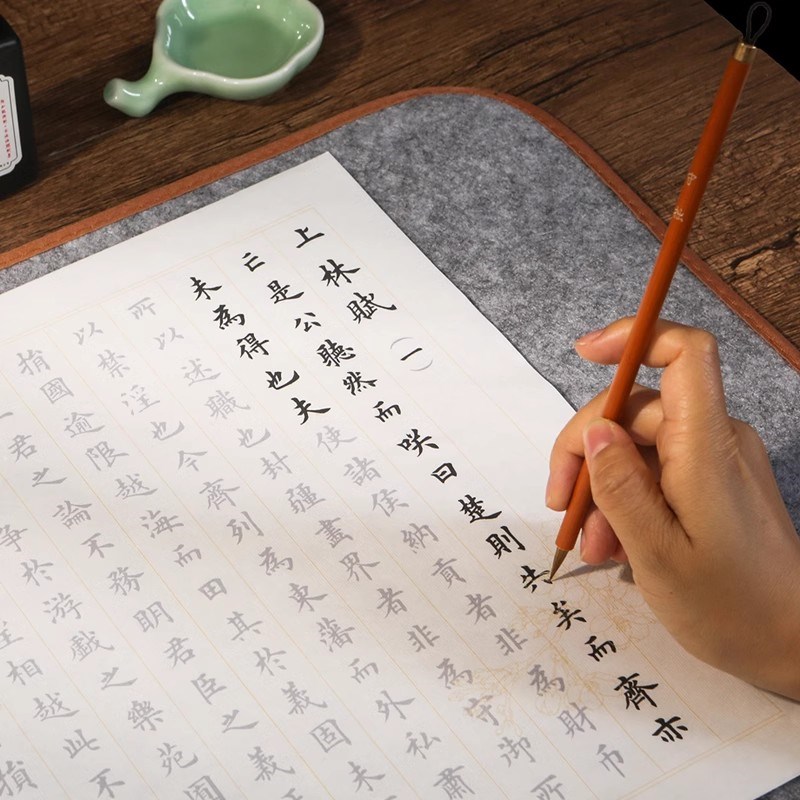 上林賦（一）
亡是公聽然而咲曰楚則失矣而齊亦
未為得也夫使諸侯納貢者非為財币
所以述職也封疆畫界者非為守御所
以禁淫也今齊列為東藩而外私肅
捐國逾限越海而田其於義固未
君之論不務明君臣之義
爭於游戲之樂苑
相越此不